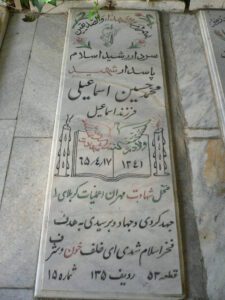 سردار رشید اسلام
پاسدار شهید
محمد حسین اسماعیلی
فرزند اسماعیل
ولادت شهادت
۱۳۴۱ ۶۵/۴/۱۷
محل شهادت مهران عملیات کربلای ۱
جهد کردی و جهاد و برسیدی به هدف
فخر اسلام شدی ای خلف خون و شرف
قطعه ۵۳ ردیف ۱۳۵ شماره ۱۵